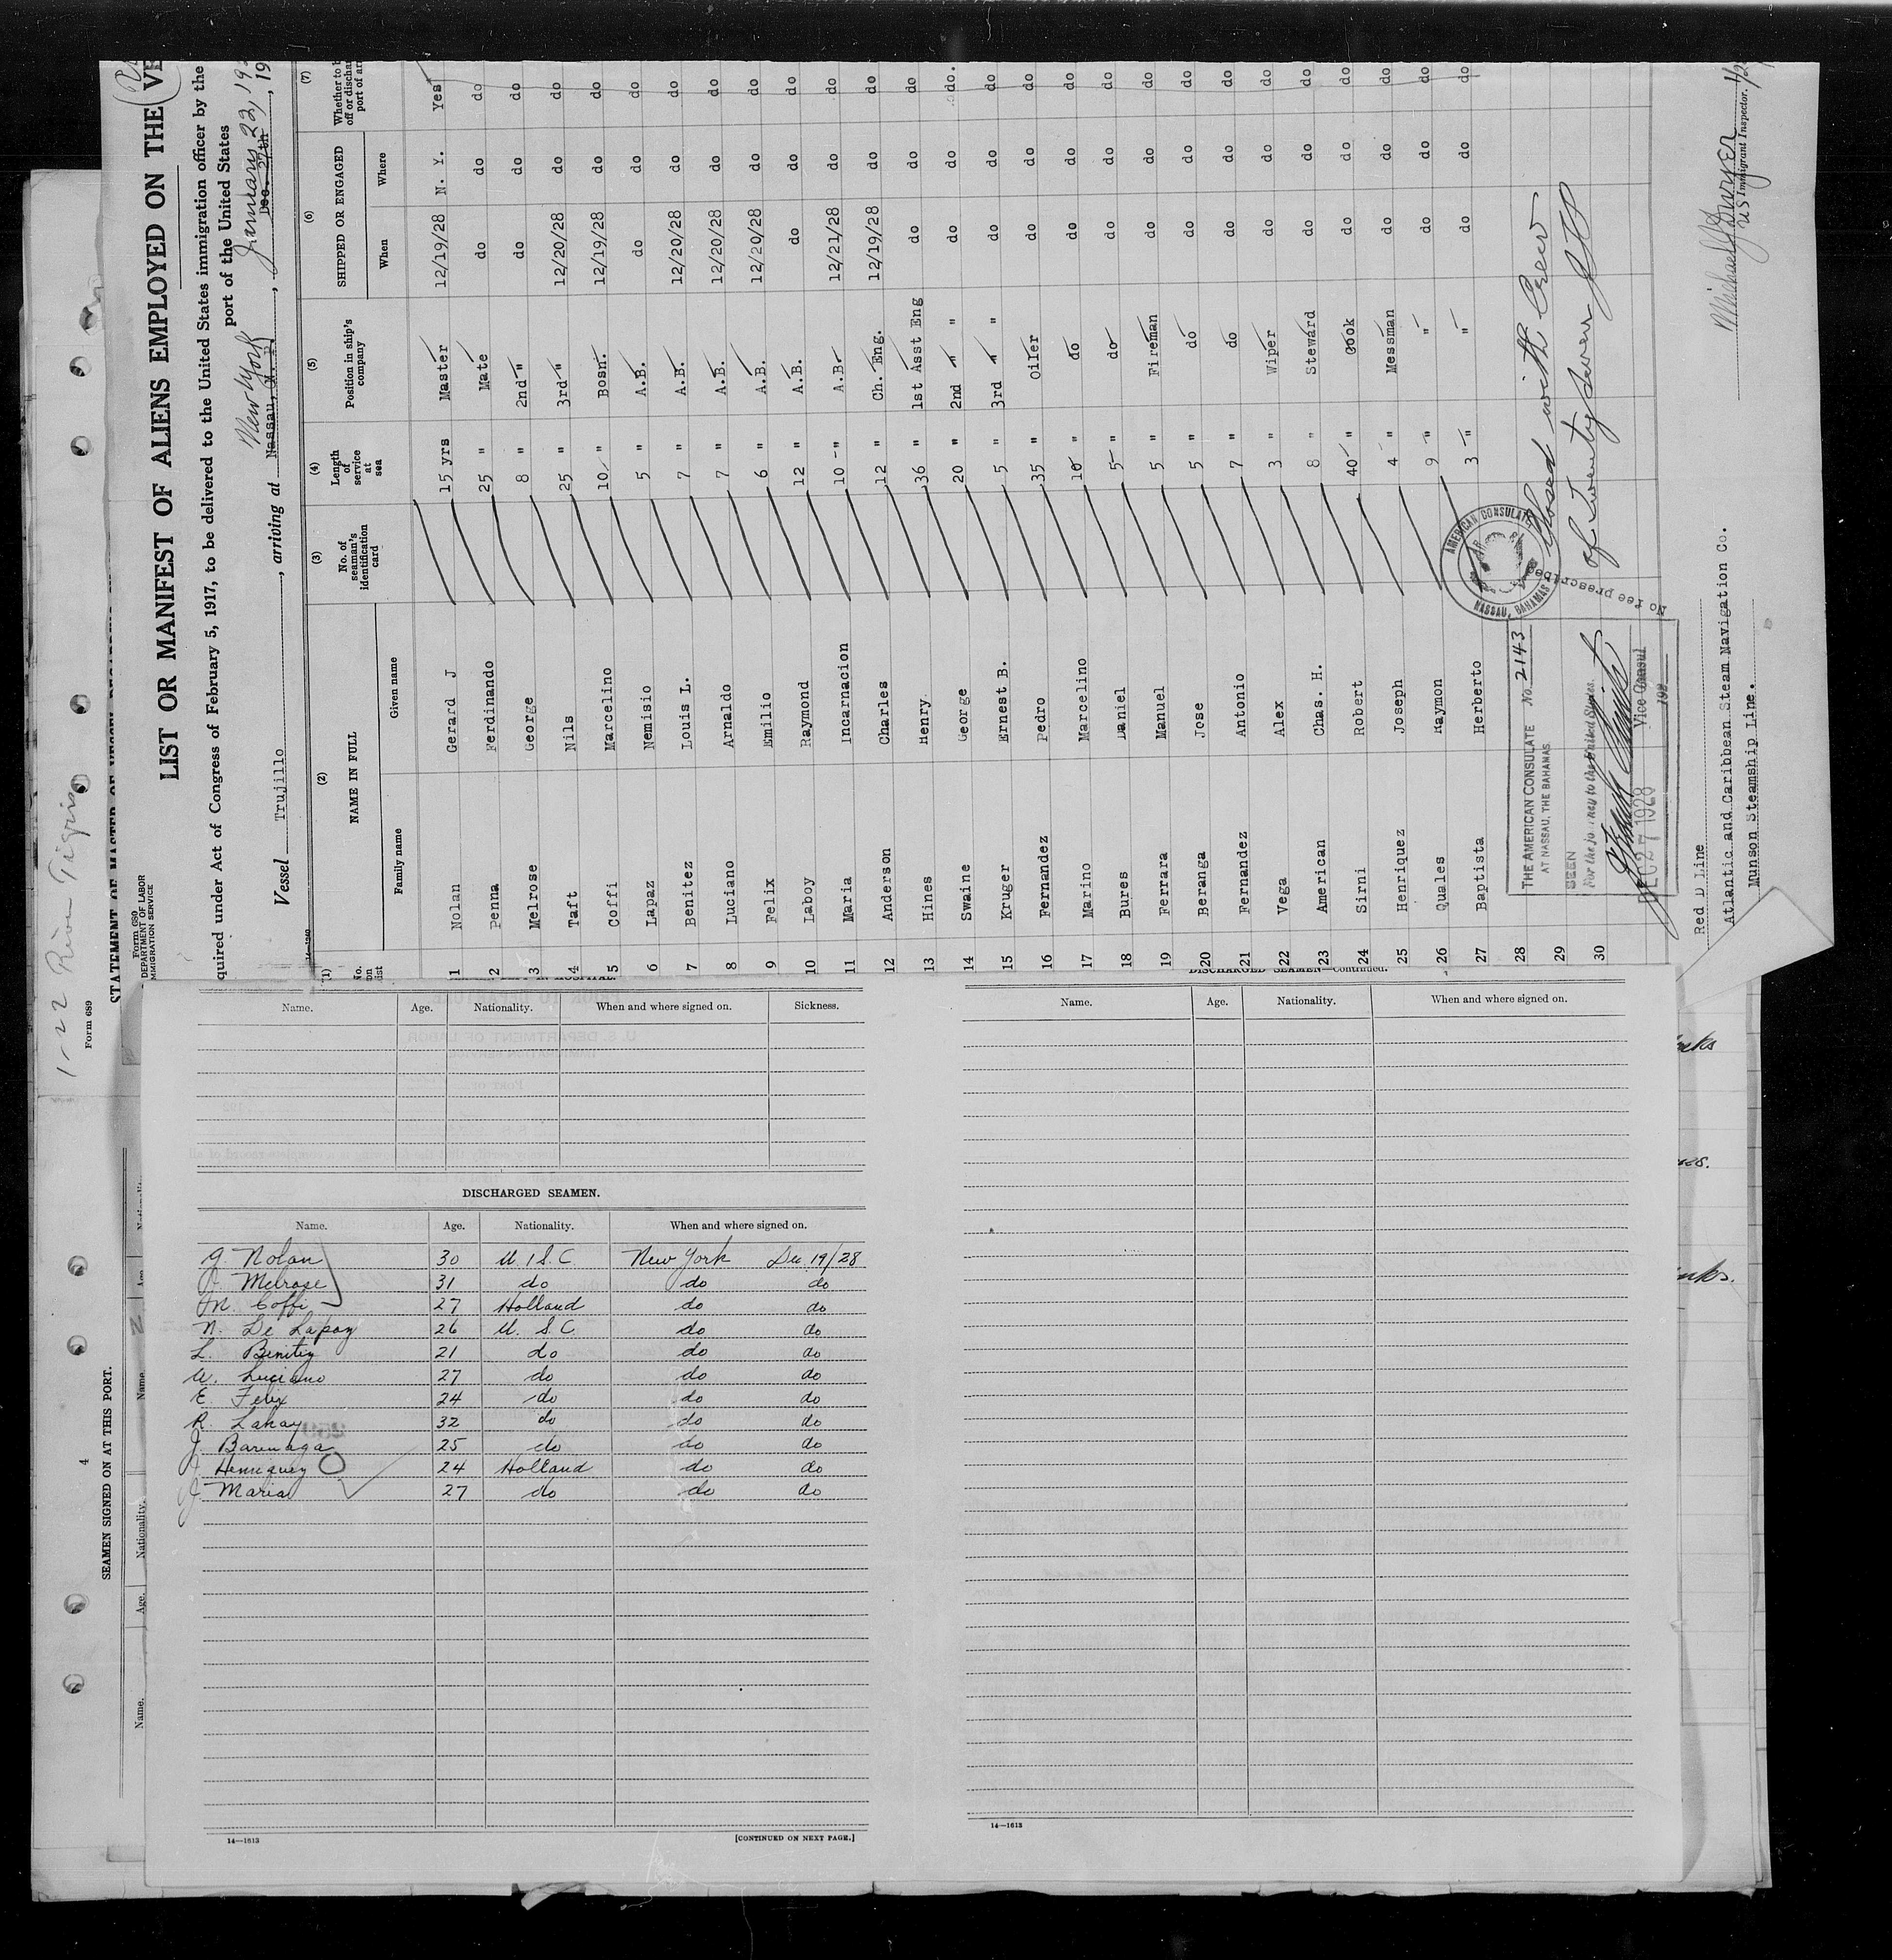 1-22 River Tigris
Form 689
STATEMENT OF MASTER OF VESSEL REGARDING
Form 680
DEPARTMENT OF LABOR
IMMIGRATION SERVICE
LIST OR MANIFEST OF ALIENS EMPLOYED ON THE VE
quired under Act of Congress of February 5, 1917, to be delivered to the United States immigration officer by the
port of the United States
New York January 23, 19
Vessel Trujillo, arriving at Nassau, N. P., Dec. 27th, 19
(1) (2) (3) (4) (5) (6) (7)
No. on list NAME IN FULL No. of seaman's identification card Length of service at sea Position in ship's company SHIPPED OR ENGAGED Whether to b off or dischar port of arr
Family name Given name When Where
1 Nolan Gerard J 15 yrs Master 12/19/28 N. Y. Yes
2 Penna Ferdinando 25 " Mate do do do
3 Melrose George 8 " 2nd " do do do
4 Taft Nils 25 " 3rd " 12/20/28 do do
5 Coffi Marcelino 10 " Bosn. 12/19/28 do do
6 Lapaz Nemisio 5 " A.B. do do do
7 Benitez Louis L. 7 " A.B. 12/20/28 do do
8 Luciano Arnaldo 7 " A.B. 12/20/28 do do
9 Felix Emilio 6 " A.B. 12/20/28 do do
10 Laboy Raymond 12 " A.B. do do do
11 Maria Incarnacion 10 " A.B. 12/21/28 do do
12 Anderson Charles 12 " Ch. Eng. 12/19/28 do do
13 Hines Henry 36 " 1st Asst Eng do do do
14 Swaine George 20 " 2nd " " do do do.
15 Kruger Ernest B. 5 " 3rd " " do do do
16 Fernandez Pedro 35 " Oiler do do do
17 Marino Marcelino 10 " do do do do
18 Bures Daniel 5 " do do do do
19 Ferrara Manuel 5 " Fireman do do do
20 Beranga Jose 5 " do do do do
21 Fernandez Antonio 7 " do do do do
22 Vega Alex 3 " Wiper do do do
23 American Chas. H. 8 " Steward do do do
24 Sirni Robert 40 " Cook do do do
25 Henriquez Joseph 4 " Messman do do do
26 Quales Raymon 9 " " do do do
27 Baptista Herberto 3 " " do do do
28
29
30
Closed with Crew
of Twenty Seven
THE AMERICAN CONSULATE No. 2143
AT NASSAU, THE BAHAMAS
SEEN
For the journey to the United States.
Vice Consul
DEC 27 1928
192
AMERICAN CONSULATE
NASSAU, BAHAMAS
No fee prescribed
Red D Line
Atlantic and Caribbean Steam Navigation Co.
Munson Steamship Line.
US Immigrant Inspector.
Name. Age. Nationality. When and where signed on. Sickness.
DISCHARGED SEAMEN.
Name. Age. Nationality. When and where signed on.
G. Nolan 30 U.S.C New York Dec 19/28
Melrose 31 do do do
M. Coffi 27 Holland do do
N. De Lapaz 26 U. S.C. do do
L. Benitez 21 do do do
A. Luciano 27 do do do
E. Felix 24 do do do
R. Lahay 32 do do do
J. Barenaga 25 do do do
J. Henriquez 24 Holland do do
J. Maria 27 do do do
14—1613 [CONTINUED ON NEXT PAGE.]
DISCHARGED SEAMEN—Continued.
Name. Age. Nationality. When and where signed on.
14—1613
4
SEAMEN SIGNED ON AT THIS PORT.
Name. Age. Nationality. Name. Age.